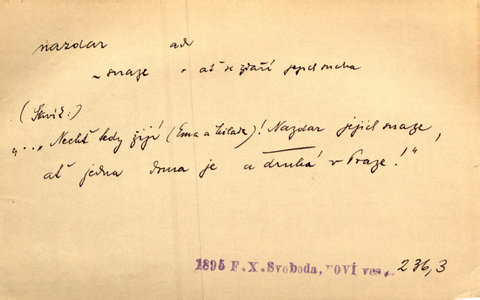 nazdar ad
~ snaze " ať se zdaří jejich snaha
(Slavíč.)
„... Nechť tedy žijí (Ema a Milada)! Nazdar jejich snaze,
ať jedna doma je a druhá v Praze!“
1895 F. X. Svoboda, NOVÍ ves., 236,3